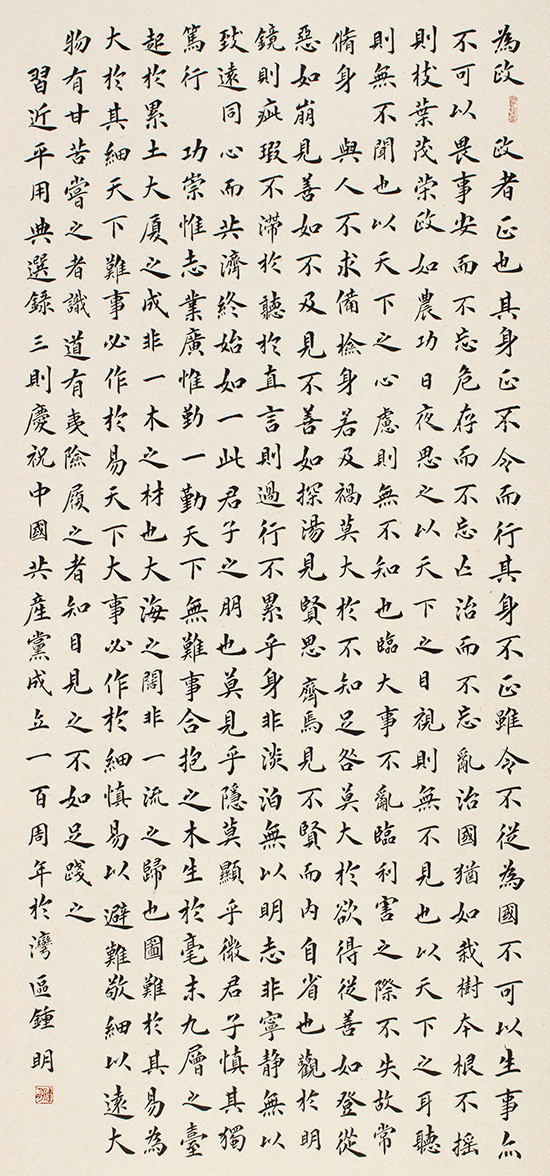 為政 政者正也其身正不令而行其身不正雖令不從為國不可以生事亦
不可以畏事安而不忘危存而不忘亡治而不忘亂治國猶如栽樹本根不搖
則枝葉茂榮政如農功日夜思之以天下之目視則無不見也以天下之耳聽
則無不聞也以天下之心慮則無不知也臨大事不亂臨利害之際不失故常
脩身 與人不求備檢身若及禍莫大於不知足咎莫大於欲得從善如登從
惡如崩見善如不及見不善如探湯見賢思齊焉見不賢而內自省也觀於明
鏡則疵瑕不滯於聽於直言則過行不累乎身非淡泊無以明志非寧靜無以
致遠同心而共濟終始如一此君子之朋也莫見乎隱莫顯乎微君子慎其獨
篤行 功崇惟志業廣惟勤一勤天下無難事合抱之木生於毫末九層之臺
起於累土大廈之成非一木之材也大海之闊非一流之歸也圖難於其易為
大於其細天下難事必作於易天下大事必作於細慎易以避難敬細以遠大
物有甘苦嘗之者識道有夷險履之者知目見之不如足踐之
習近平用典選錄三則慶祝中國共產黨成立一百周年於灣區鍾明